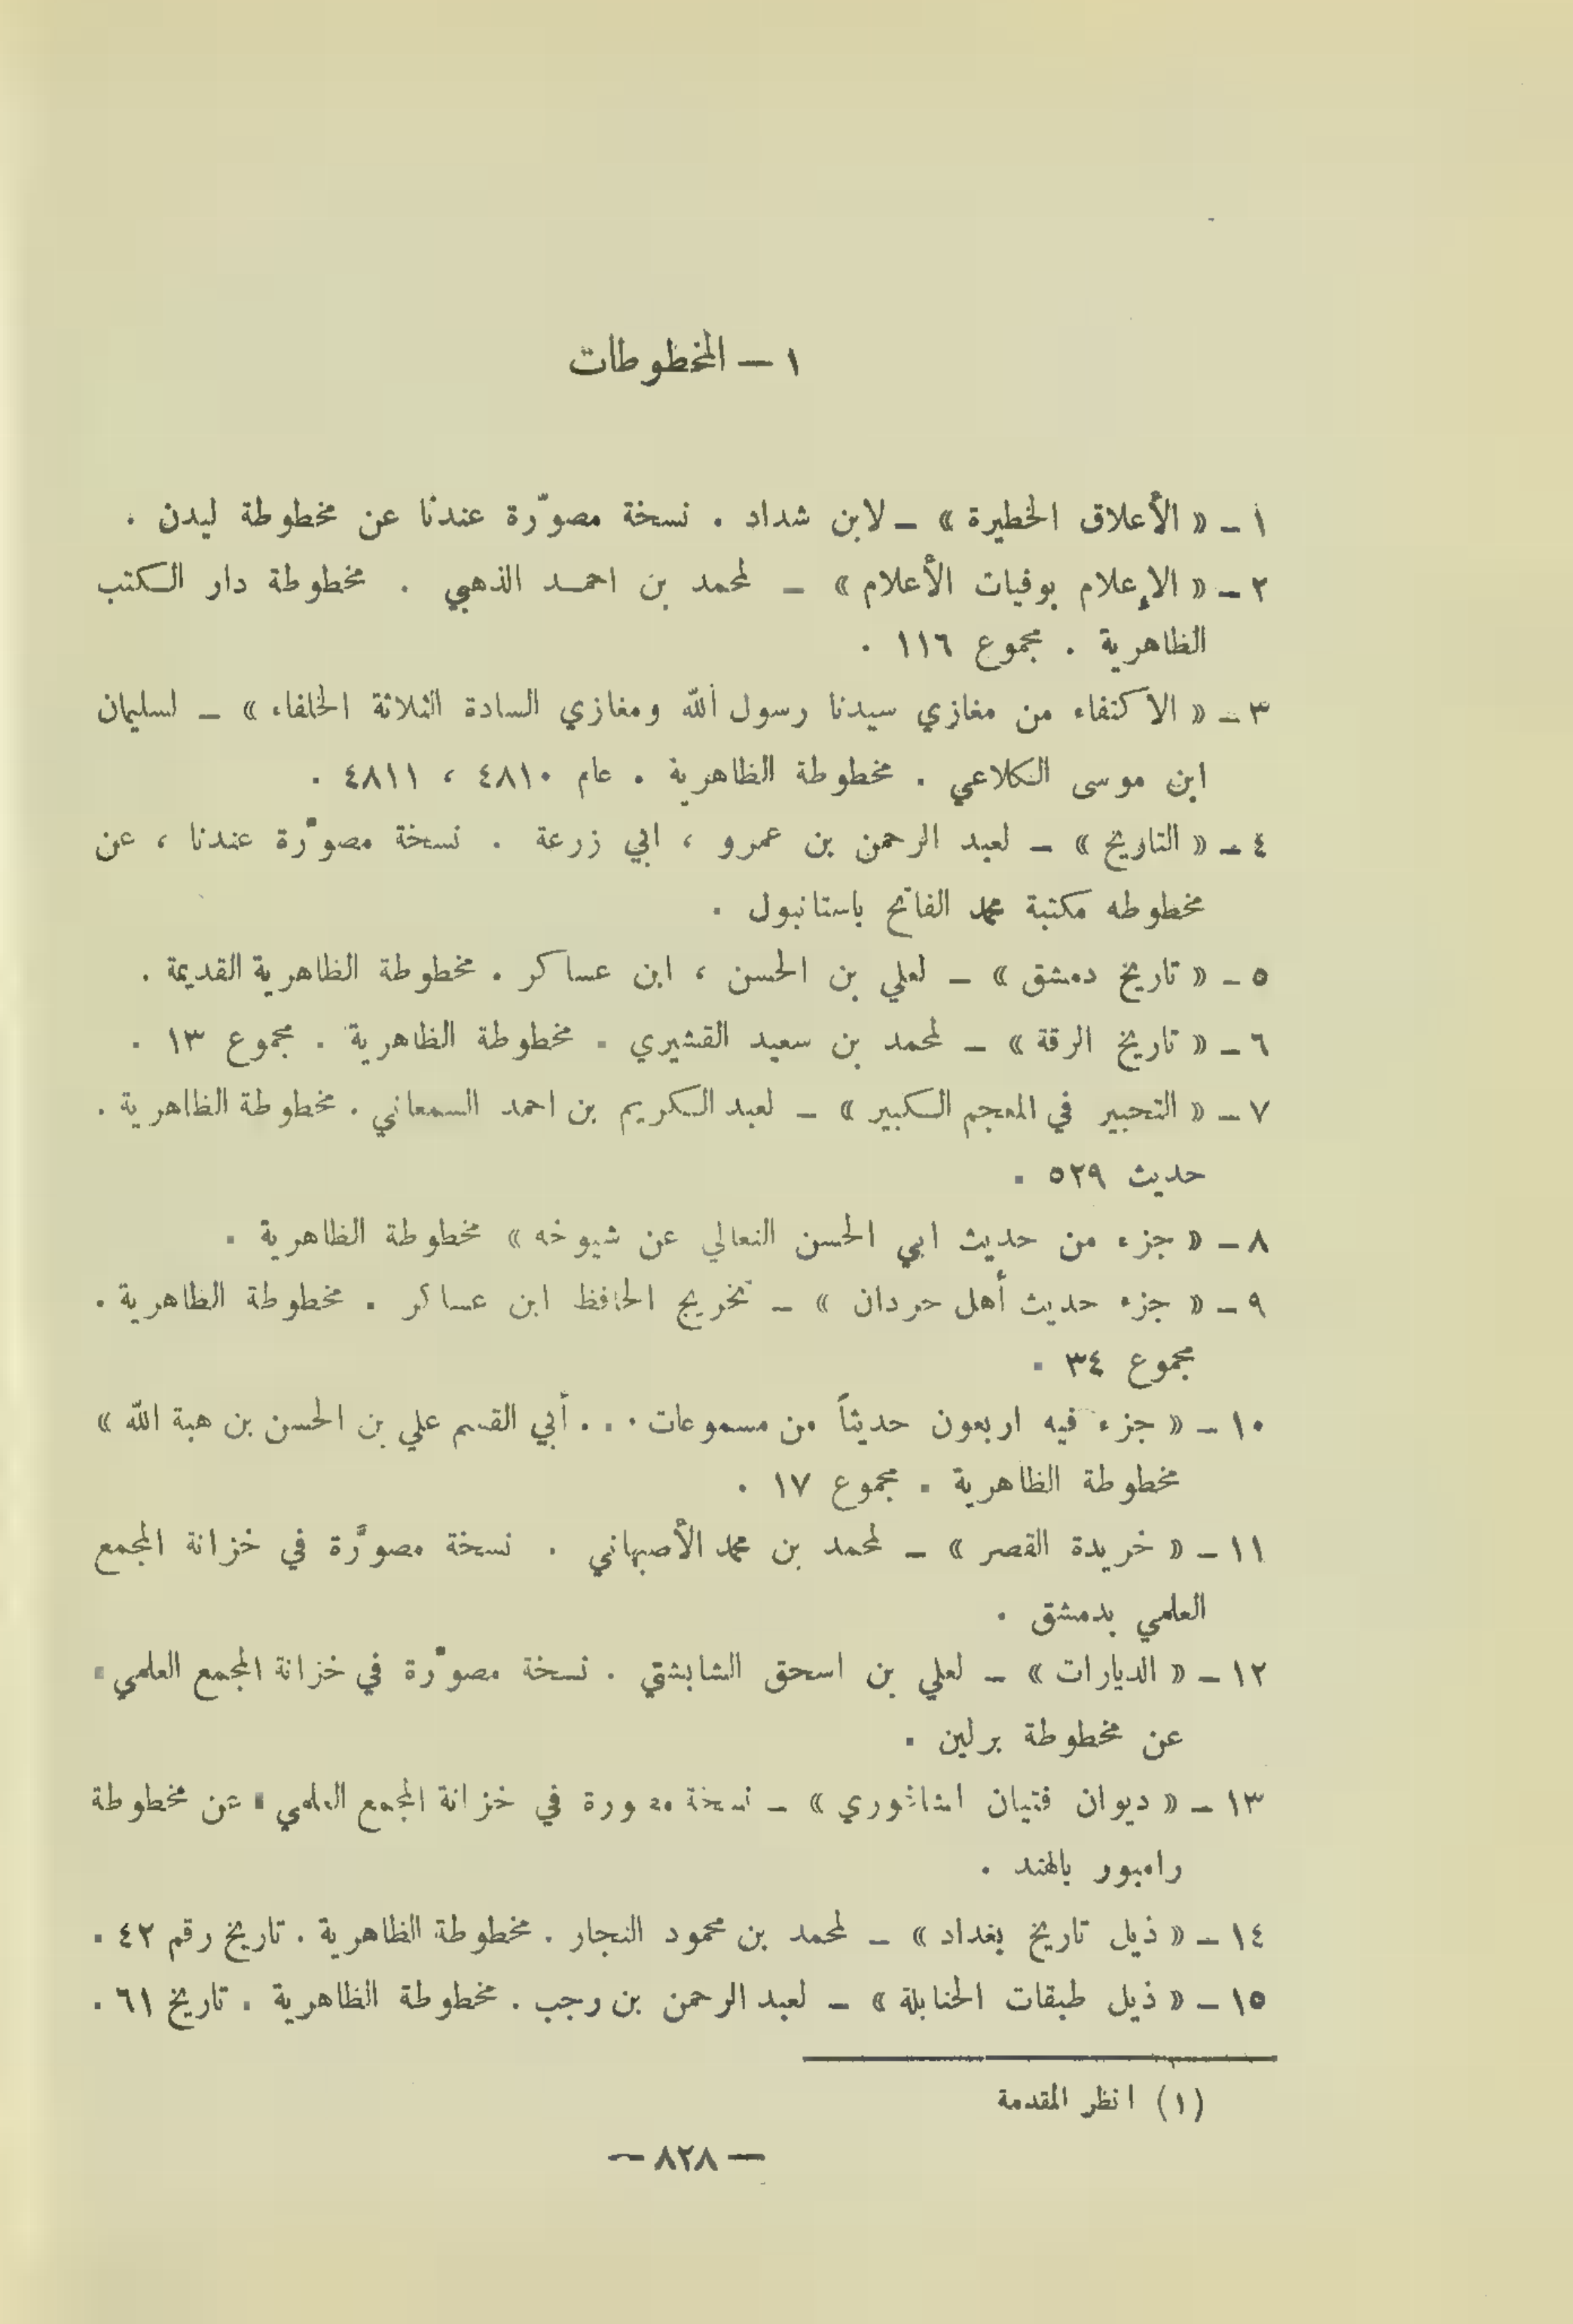 ١ – المخطوطات
١ – « الأعلاق الخطيرة » – لابن شداد . نسخة مصوّرة عندنا عن مخطوطة ليدن .
٢ – « الإعلام بوفيات الأعلام » – لمحمد بن احمد الذهبي . مخطوطة دار الكتب
الظاهرية . مجموع ١١٦ .
٣ – « الاكتفاء من مغازي سيدنا رسول الله ومغازي السادة الثلاثة الخلفاء » – لسليمان
ابن موسى الكلاعي . مخطوطة الظاهرية . عام ٤٨١٠ ، ٤٨١١ .
٤ – « التاريخ » – لعبد الرحمن بن عمرو ، ابي زرعة . نسخة مصوّرة عندنا ، عن
مخطوطه مكتبة محمد الفاتح باستانبول .
٥ – « تاريخ دمشق » – لعلي بن الحسن ، ابن عساكر . مخطوطة الظاهرية القديمة .
٦ – « تاريخ الرقة » – لمحمد بن سعيد القشيري . مخطوطة الظاهرية . مجموع ١٣ .
٧ – « التحبير في المعجم الكبير » – لعبد الكريم بن احمد السمعاني . مخطوطة الظاهرية .
حديث ٥٢٩ .
٨ – « جزء من حديث ابي الحسن النعالي عن شيوخه » مخطوطة الظاهرية .
٩ – « جزء حديث أهل حردان » – تخريج الحافظ ابن عساكر . مخطوطة الظاهرية .
مجموع ٣٤ .
١٠ – « جزء فيه اربعون حديثاً من مسموعات . . . أبي القسم علي بن الحسن بن هبة الله »
مخطوطة الظاهرية . مجموع ١٧ .
١١ – « خريدة القصر » – لمحمد بن محمد الأصبهاني . نسخة مصوَّرة في خزانة المجمع
العلمي بدمشق .
١٢ – « الديارات » – لعلي بن اسحق الشابشتي . نسخة مصوّرة في خزانة المجمع العلمي .
عن مخطوطة برلين .
١٣ – « ديوان فتيان الشاغوري » – نسخة مصورة في خزانة المجمع العلمي . عن مخطوطة
رامبور بالهند .
١٤ – « ذيل تاريخ بغداد » – لمحمد بن محمود النجار . مخطوطة الظاهرية . تاريخ رقم ٤٢ .
١٥ – « ذيل طبقات الحنابلة » – لعبد الرحمن بن رجب . مخطوطة الظاهرية . تاريخ ٦١ .
(١) انظر المقدمة
– ٨٢٨ –